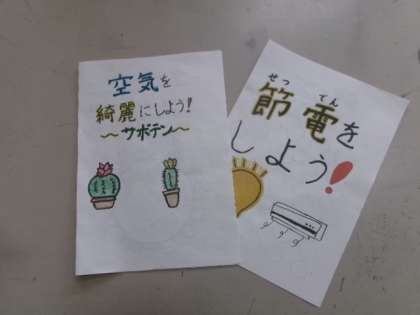 空気を
綺麗にしよう!
〜サボテン〜
せつ でん
節電を
しよう!